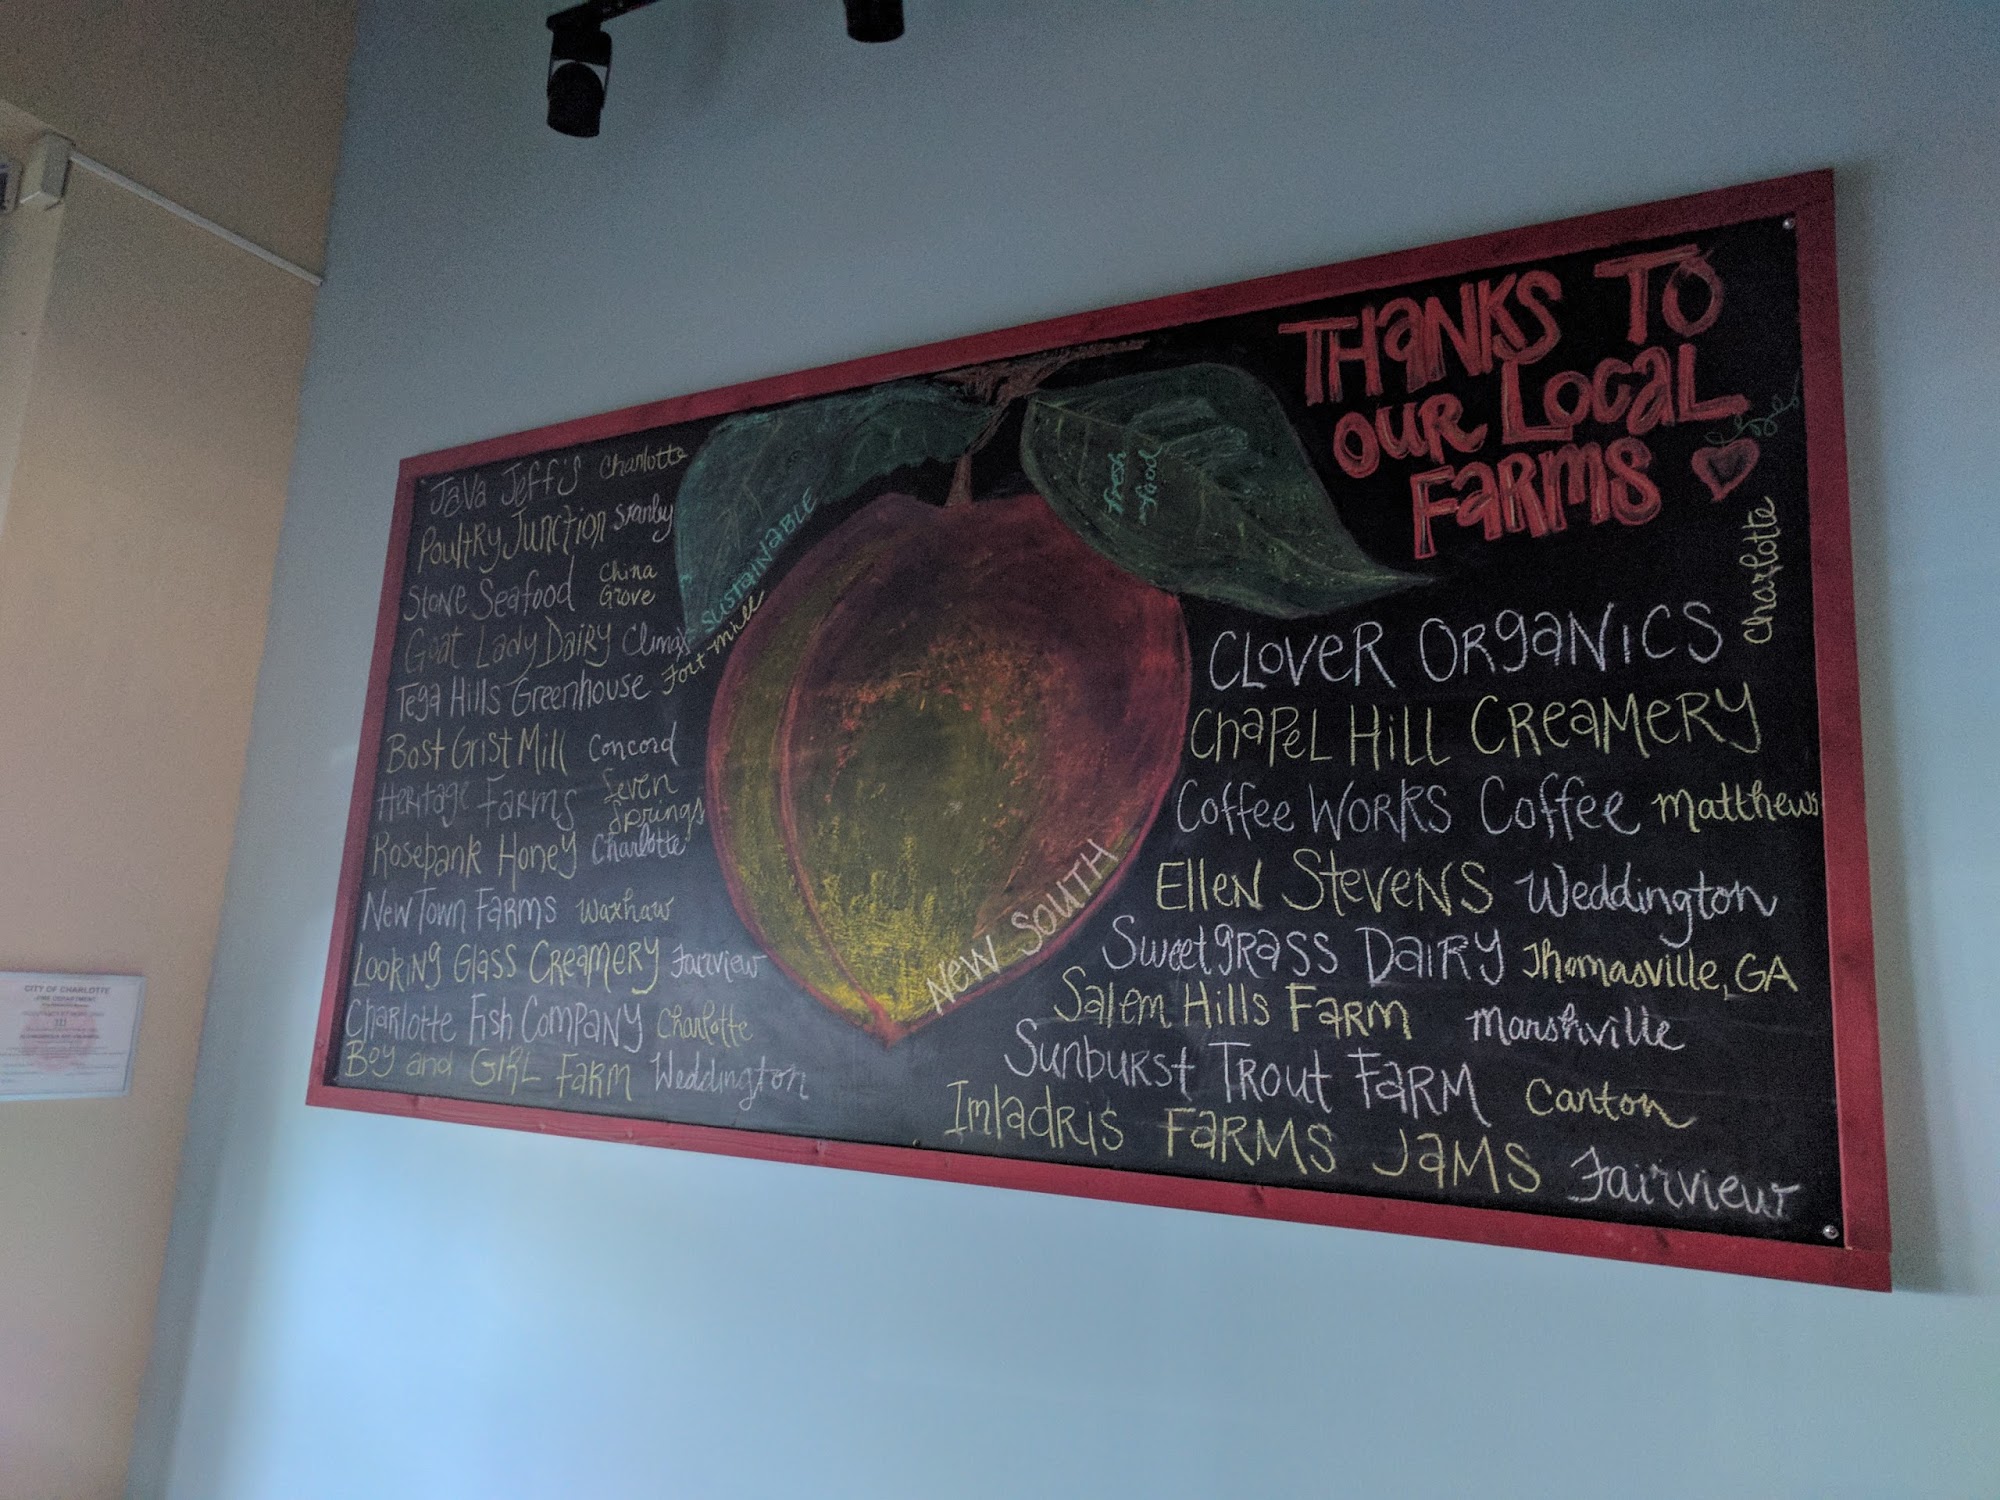 THANKS TO
OUR LOCAL
FARMS
Java Jeff's Charlotte
Poultry Junction Stanly
Stone Seafood China Grove
Goat Lady Dairy Climax
Tega Hills Greenhouse Fort Mill
Bost Grist Mill Concord
Heritage Farms Seven Springs
Rosebank Honey Charlotte
New Town Farms Waxhaw
Looking Glass Creamery Fairview
Charlotte Fish Company Charlotte
Boy and Girl Farm Weddington
SUSTAINABLE
fresh
food
NEW SOUTH
Clover Organics Charlotte
Chapel Hill Creamery
Coffee Works Coffee Matthews
Ellen Stevens Weddington
Sweetgrass Dairy Thomasville, GA
Salem Hills Farm Marshville
Sunburst Trout Farm Canton
Imladris Farms Jams Fairview
CITY OF CHARLOTTE
FIRE DEPARTMENT